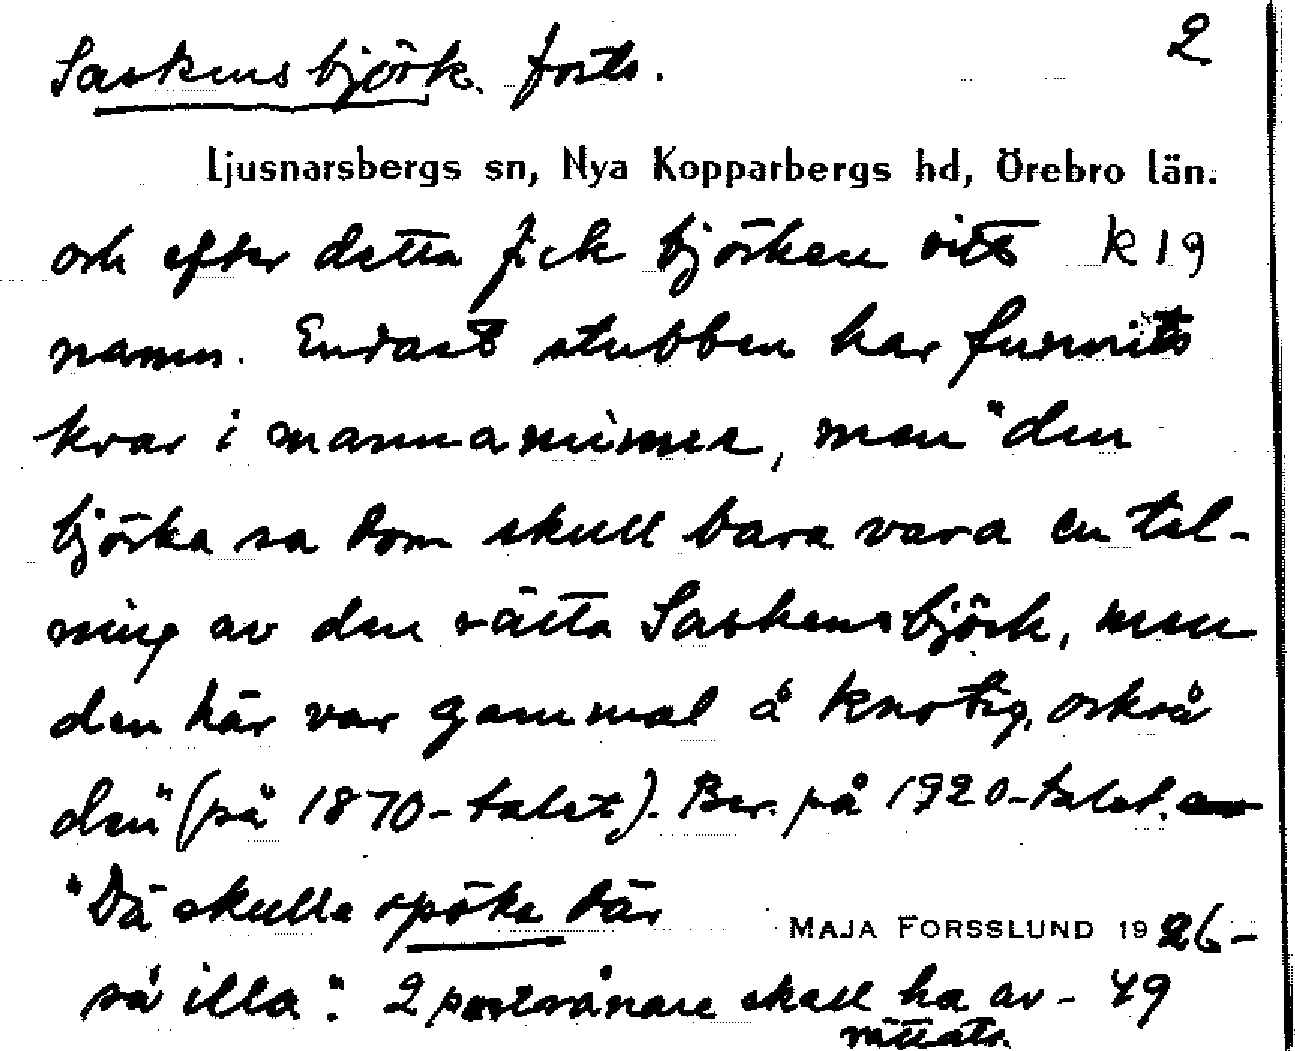 Saskensbjörk. forts. 2
Ljusnarsbergs sn, Nya Kopparbergs hd, Örebro län.
och efter detta fick björken sitt k 19
namn. Endast stubben har funnits
kvar i mannaminne, men "den
björka sa dom skull bara vara en tel-
ning av den rätta Saskensbjörk, men
den här var gammal å knotig, också
den" (på 1870-talet). Ber. på 1920-talet.
"Dä skulle spöka där MAJA FORSSLUND 1926-
så illa". 2 postrånare skall ha av- 49
rättats.